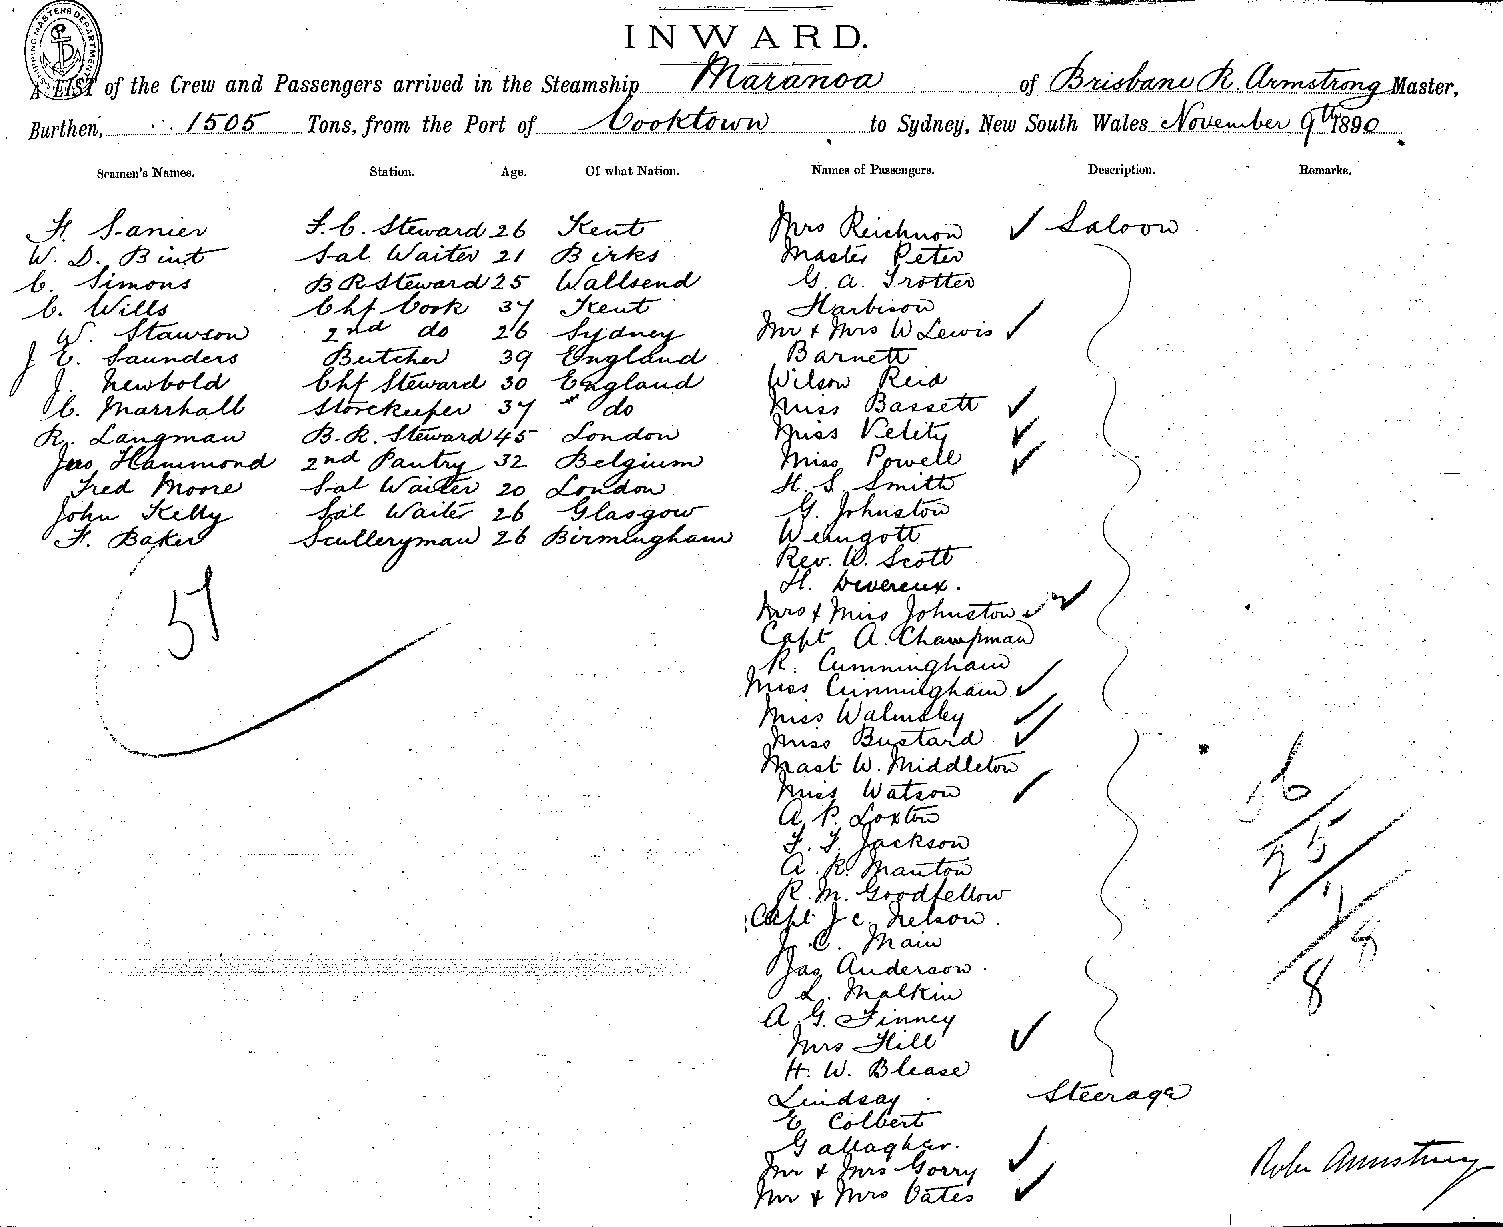 INWARD.
A LIST of the Crew and Passengers arrived in the Steamship Maranoa of Brisbane R. Armstrong Master,
Burthen, 1505 Tons, from the Port of Cooktown to Sydney, New South Wales November 9th 1890
Seamen's Names. Station. Age. Of what Nation. Names of Passengers. Description. Remarks.
H. Sanier F. C. Steward 26 Kent Mrs Reichnon ✓ Saloon
W. D. Bint Sal Waiter 21 Birks Master Peter
C. Simons B R Steward 25 Wallsend G. A. Trotter
C. Wills Chf Cook 37 Kent Harbison
W. Stawson 2nd do 26 Sydney Mr & Mrs W Lewis ✓
J E. Saunders Butcher 39 England Barnett
J. Newbold Chf Steward 30 England Wilson Reid
C. Marshall Storekeeper 37 " do Miss Bassett ✓
R. Langman B. R. Steward 45 London Miss Velity ✓
Jas Hammond 2nd Pantry 32 Belgium Miss Powell ✓
Fred Moore Sal Waiter 20 London H. S. Smith
John Kelly Sal Waiter 26 Glasgow G. Johnston
F. Baker Sculleryman 26 Birmingham Weingott
Rev. W. Scott
H. Devereux.
51 Mrs & Miss Johnston ✓ ✓
Capt A. Chawpman
R. Cunningham
Miss Cunningham ✓
Miss Walmsley ✓
Miss Bustard ✓
Mast W. Middleton
Miss Watson ✓ 56
A. P. Loxton
F. F. Jackson 25
A. R. Manton
R. M. Goodfellow
Capt J C. Nelson.
J. C. Main 8
Jas Anderson.
L. Malkin 8
A G. Finney
Mrs Hill ✓
H. W. Blease
Lindsay Steerage
E. Colbert
Gallagher.
Mr & Mrs Gorry ✓ Robt Armstrong
Mr & Mrs Oates ✓